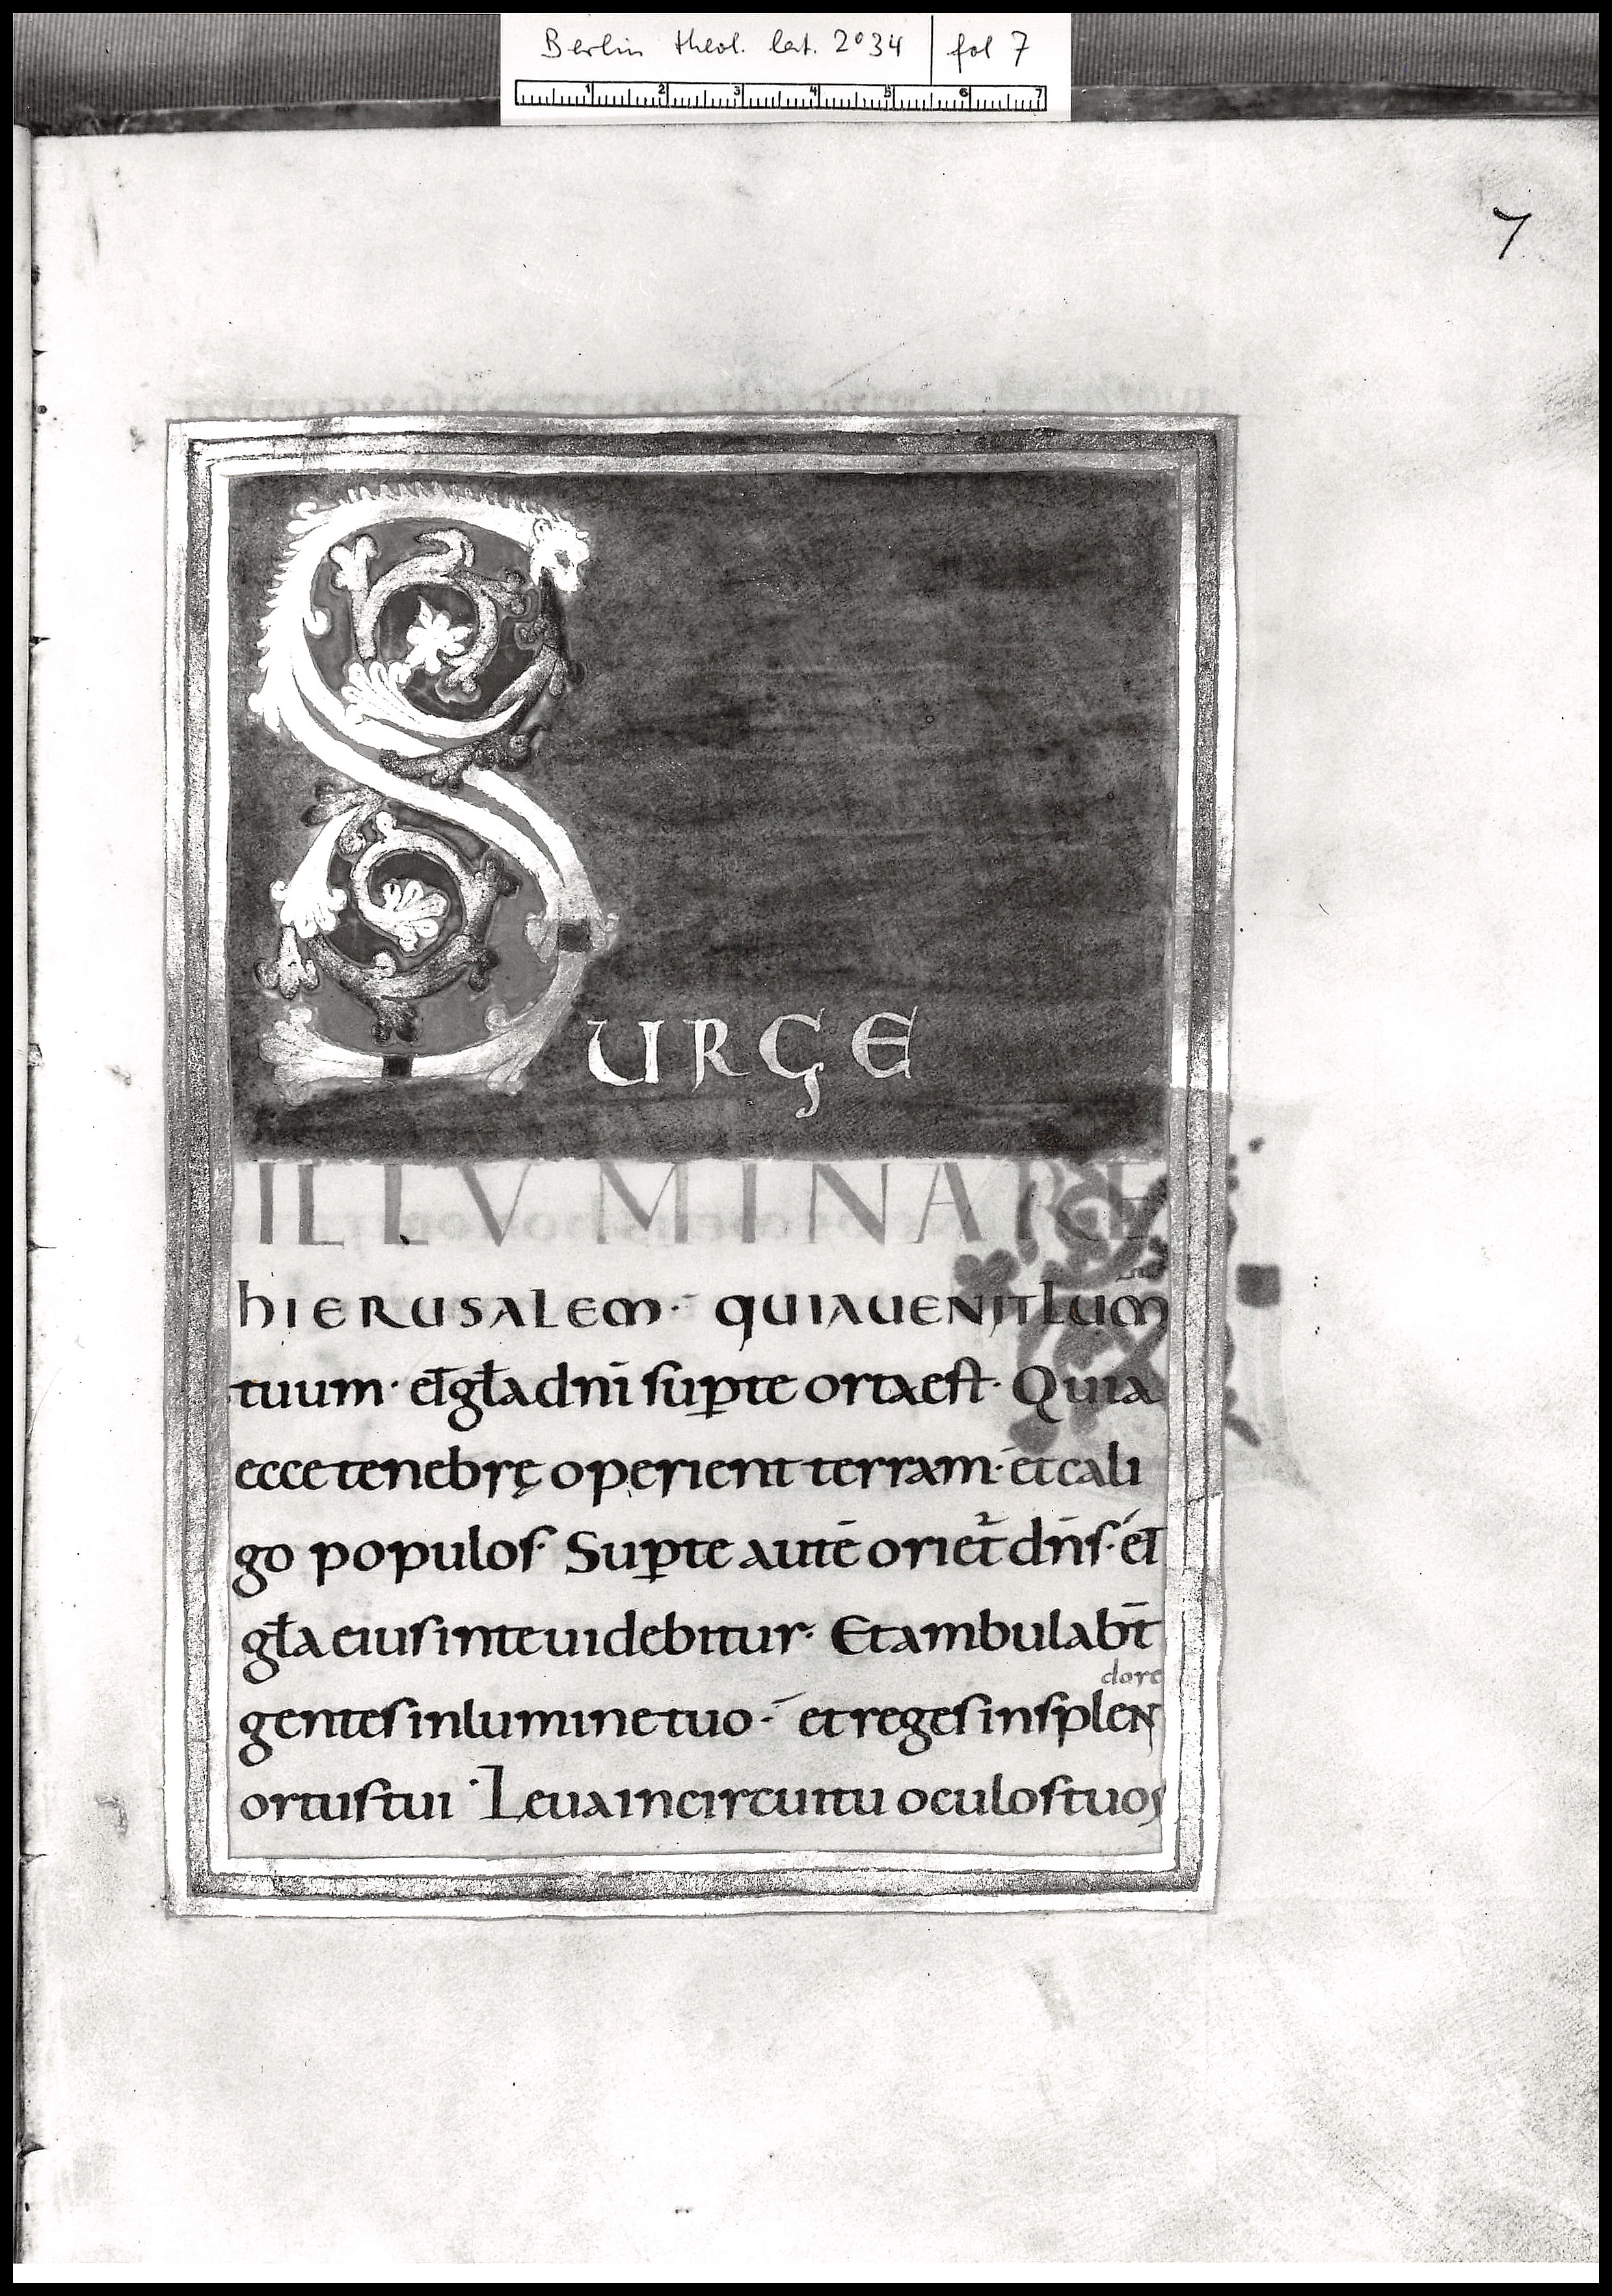 Berlin theol. lat. 2° 34 | fol 7
1 2 3 4 5 6 7
7
SURGE
ILLVMINARE
hIERUSALEM· QUIAUENITLUM̄
tuum· et̄ gł̄a dnī sup̱te ortaest· Quia
ecce tenebrę operient terram· et cali
go populos· Sup̱te autē oriet̉ dn̄s· et̄
gł̄a eius inte uidebitur· Et ambulab̄t
dore
gentes inlumine tuo· et reges insplen
ortus tui· Leua incircuitu oculos tuos